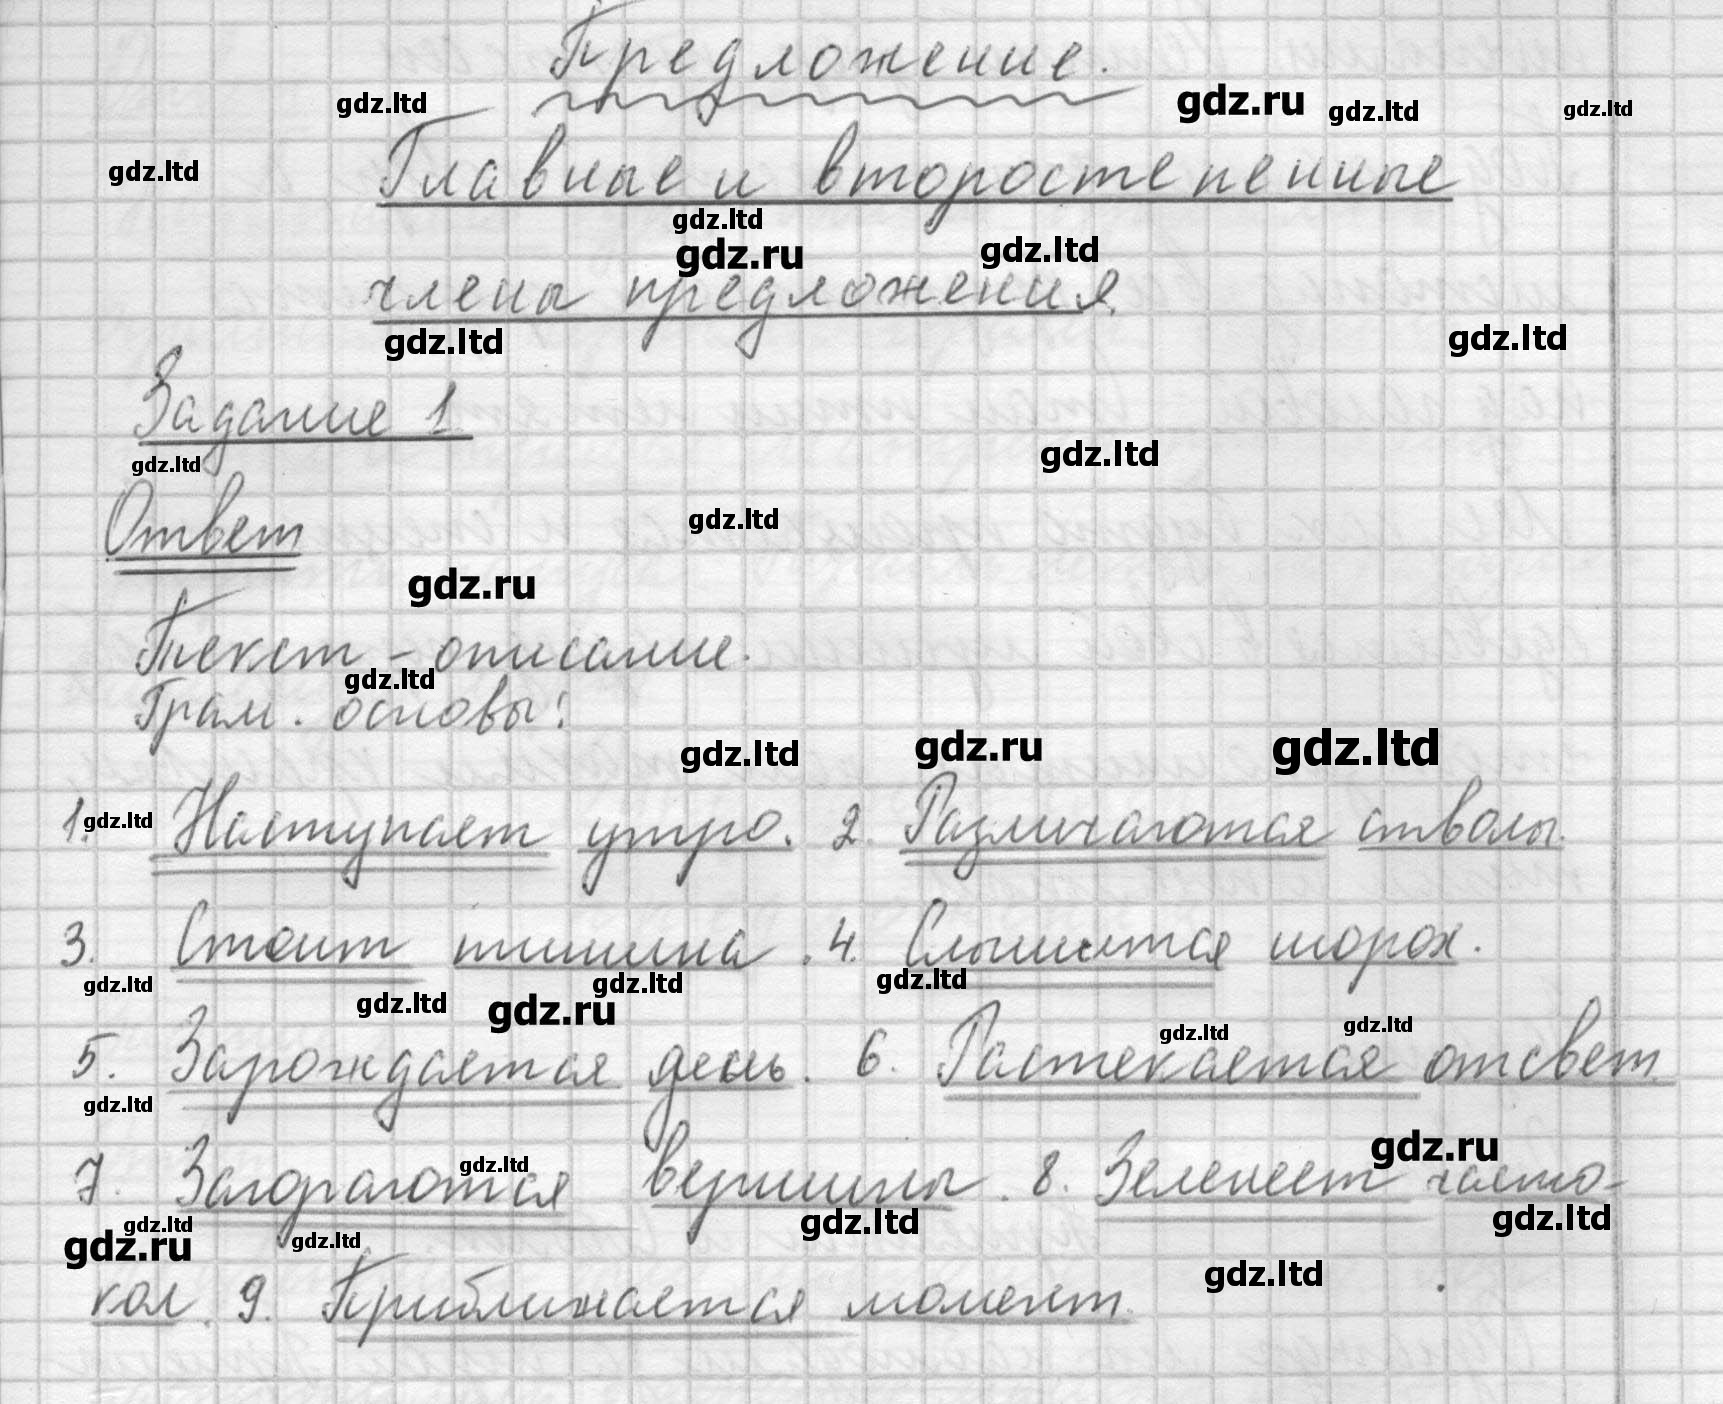 Предложение.
gdz.ltd gdz.ru gdz.ltd gdz.ltd
gdz.ltd Главные и второстепенные
gdz.ltd
gdz.ru gdz.ltd
члены предложения.
gdz.ltd gdz.ltd
Задание 1
gdz.ltd gdz.ltd
Ответ gdz.ltd
gdz.ru
Текст - описание.
gdz.ltd
Грам. основы:
gdz.ltd gdz.ru gdz.ltd
1. gdz.ltd Наступает утро. 2. Различаются стволы.
3. Стоит тишина. 4. Слышится шорох.
gdz.ltd gdz.ltd gdz.ltd
gdz.ltd gdz.ru gdz.ltd gdz.ltd
5. Зарождается день. 6. Растекается отсвет.
gdz.ltd gdz.ru
7. Загораются gdz.ltd вершины. 8. Зеленеет часто-
gdz.ltd gdz.ltd gdz.ltd
gdz.ru gdz.ltd gdz.ltd
кол. 9. Приближается момент.